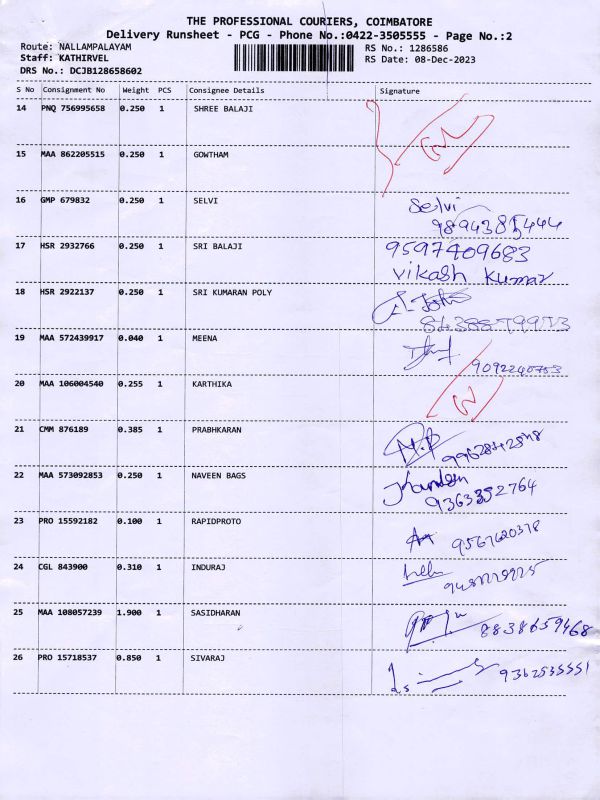 THE PROFESSIONAL COURIERS, COIMBATORE
Delivery Runsheet - PCG - Phone No.:0422-3505555 - Page No.:2
Route: NALLAMPALAYAM RS No.: 1286586
Staff: KATHIRVEL RS Date: 08-Dec-2023
DRS No.: DCJB128658602
S No Consignment No Weight PCS Consignee Details Signature
14 PNQ 756995658 0.250 1 SHREE BALAJI
15 MAA 862205515 0.250 1 GOWTHAM
16 GMP 679832 0.250 1 SELVI Selvi
9894385444
17 HSR 2932766 0.250 1 SRI BALAJI 9597409683
Vikash Kumar
18 HSR 2922137 0.250 1 SRI KUMARAN POLY
19 MAA 572439917 0.040 1 MEENA
9092240753
20 MAA 106004540 0.255 1 KARTHIKA
21 CMM 876189 0.385 1 PRABHKARAN
22 MAA 573092853 0.250 1 NAVEEN BAGS
9363352764
23 PRO 15592182 0.100 1 RAPIDPROTO
9567620378
24 CGL 843900 0.310 1 INDURAJ
25 MAA 108057239 1.900 1 SASIDHARAN 8838659468
26 PRO 15718537 0.850 1 SIVARAJ 9362535551